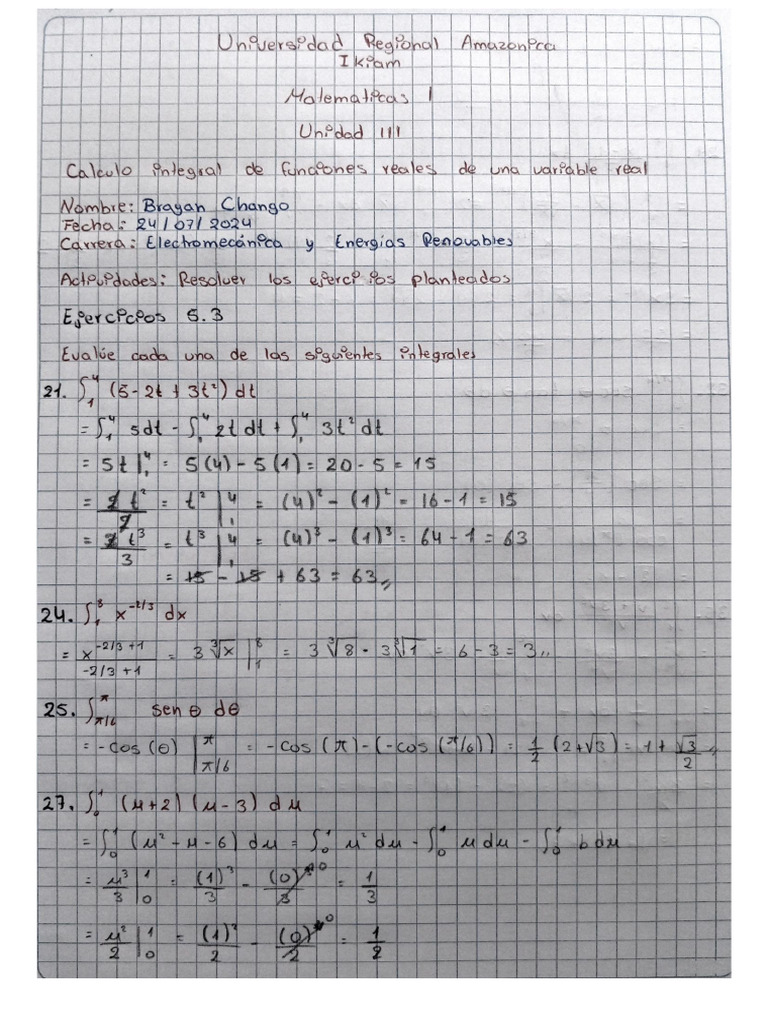 Universidad Regional Amazonica
Ikiam
Matematicas I
Unidad III
Calculo integral de funciones reales de una variable real
Nombre: Brayan Chango
Fecha: 24/07/2024
Carrera: Electromecánica y Energías Renovables
Actividades: Resolver los ejercicios planteados
Ejercicios 5.3
Evalúe cada una de las siguientes integrales
21. ∫₁⁴ (5 - 2t + 3t²) dt
= ∫₁⁴ 5dt - ∫₁⁴ 2t dt + ∫₁⁴ 3t² dt
= 5t |₁⁴ = 5(4) - 5(1) = 20 - 5 = 15
= 2t²/2 = t² |₁⁴ = (4)² - (1)² = 16 - 1 = 15
= 3t³/3 = t³ |₁⁴ = (4)³ - (1)³ = 64 - 1 = 63
= 15 - 15 + 63 = 63,,
24. ∫₁⁸ x^(-2/3) dx
= x^(-2/3 + 1)/(-2/3 + 1) = 3 ∛x |₁⁸ = 3 ∛8 - 3 ∛1 = 6 - 3 = 3,,
25. ∫_(π/6)^π sen θ dθ
= -cos(θ) |_(π/6)^π = -cos(π) - (-cos(π/6)) = 1/2 (2 + √3) = 1 + √3/2,,
27. ∫₀¹ (μ + 2)(μ - 3) dμ
= ∫₀¹ (μ² - μ - 6) dμ = ∫₀¹ μ² dμ - ∫₀¹ μ dμ - ∫₀¹ 6 dμ
= μ³/3 |₀¹ = (1)³/3 - (0)³/3 ⁰ = 1/3
= μ²/2 |₀¹ = (1)²/2 - (0)²/2 ⁰ = 1/2